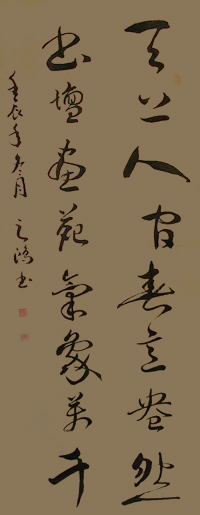 天上人间春意盎然
书坛画苑气象万千
壬辰年冬月
之鸿书